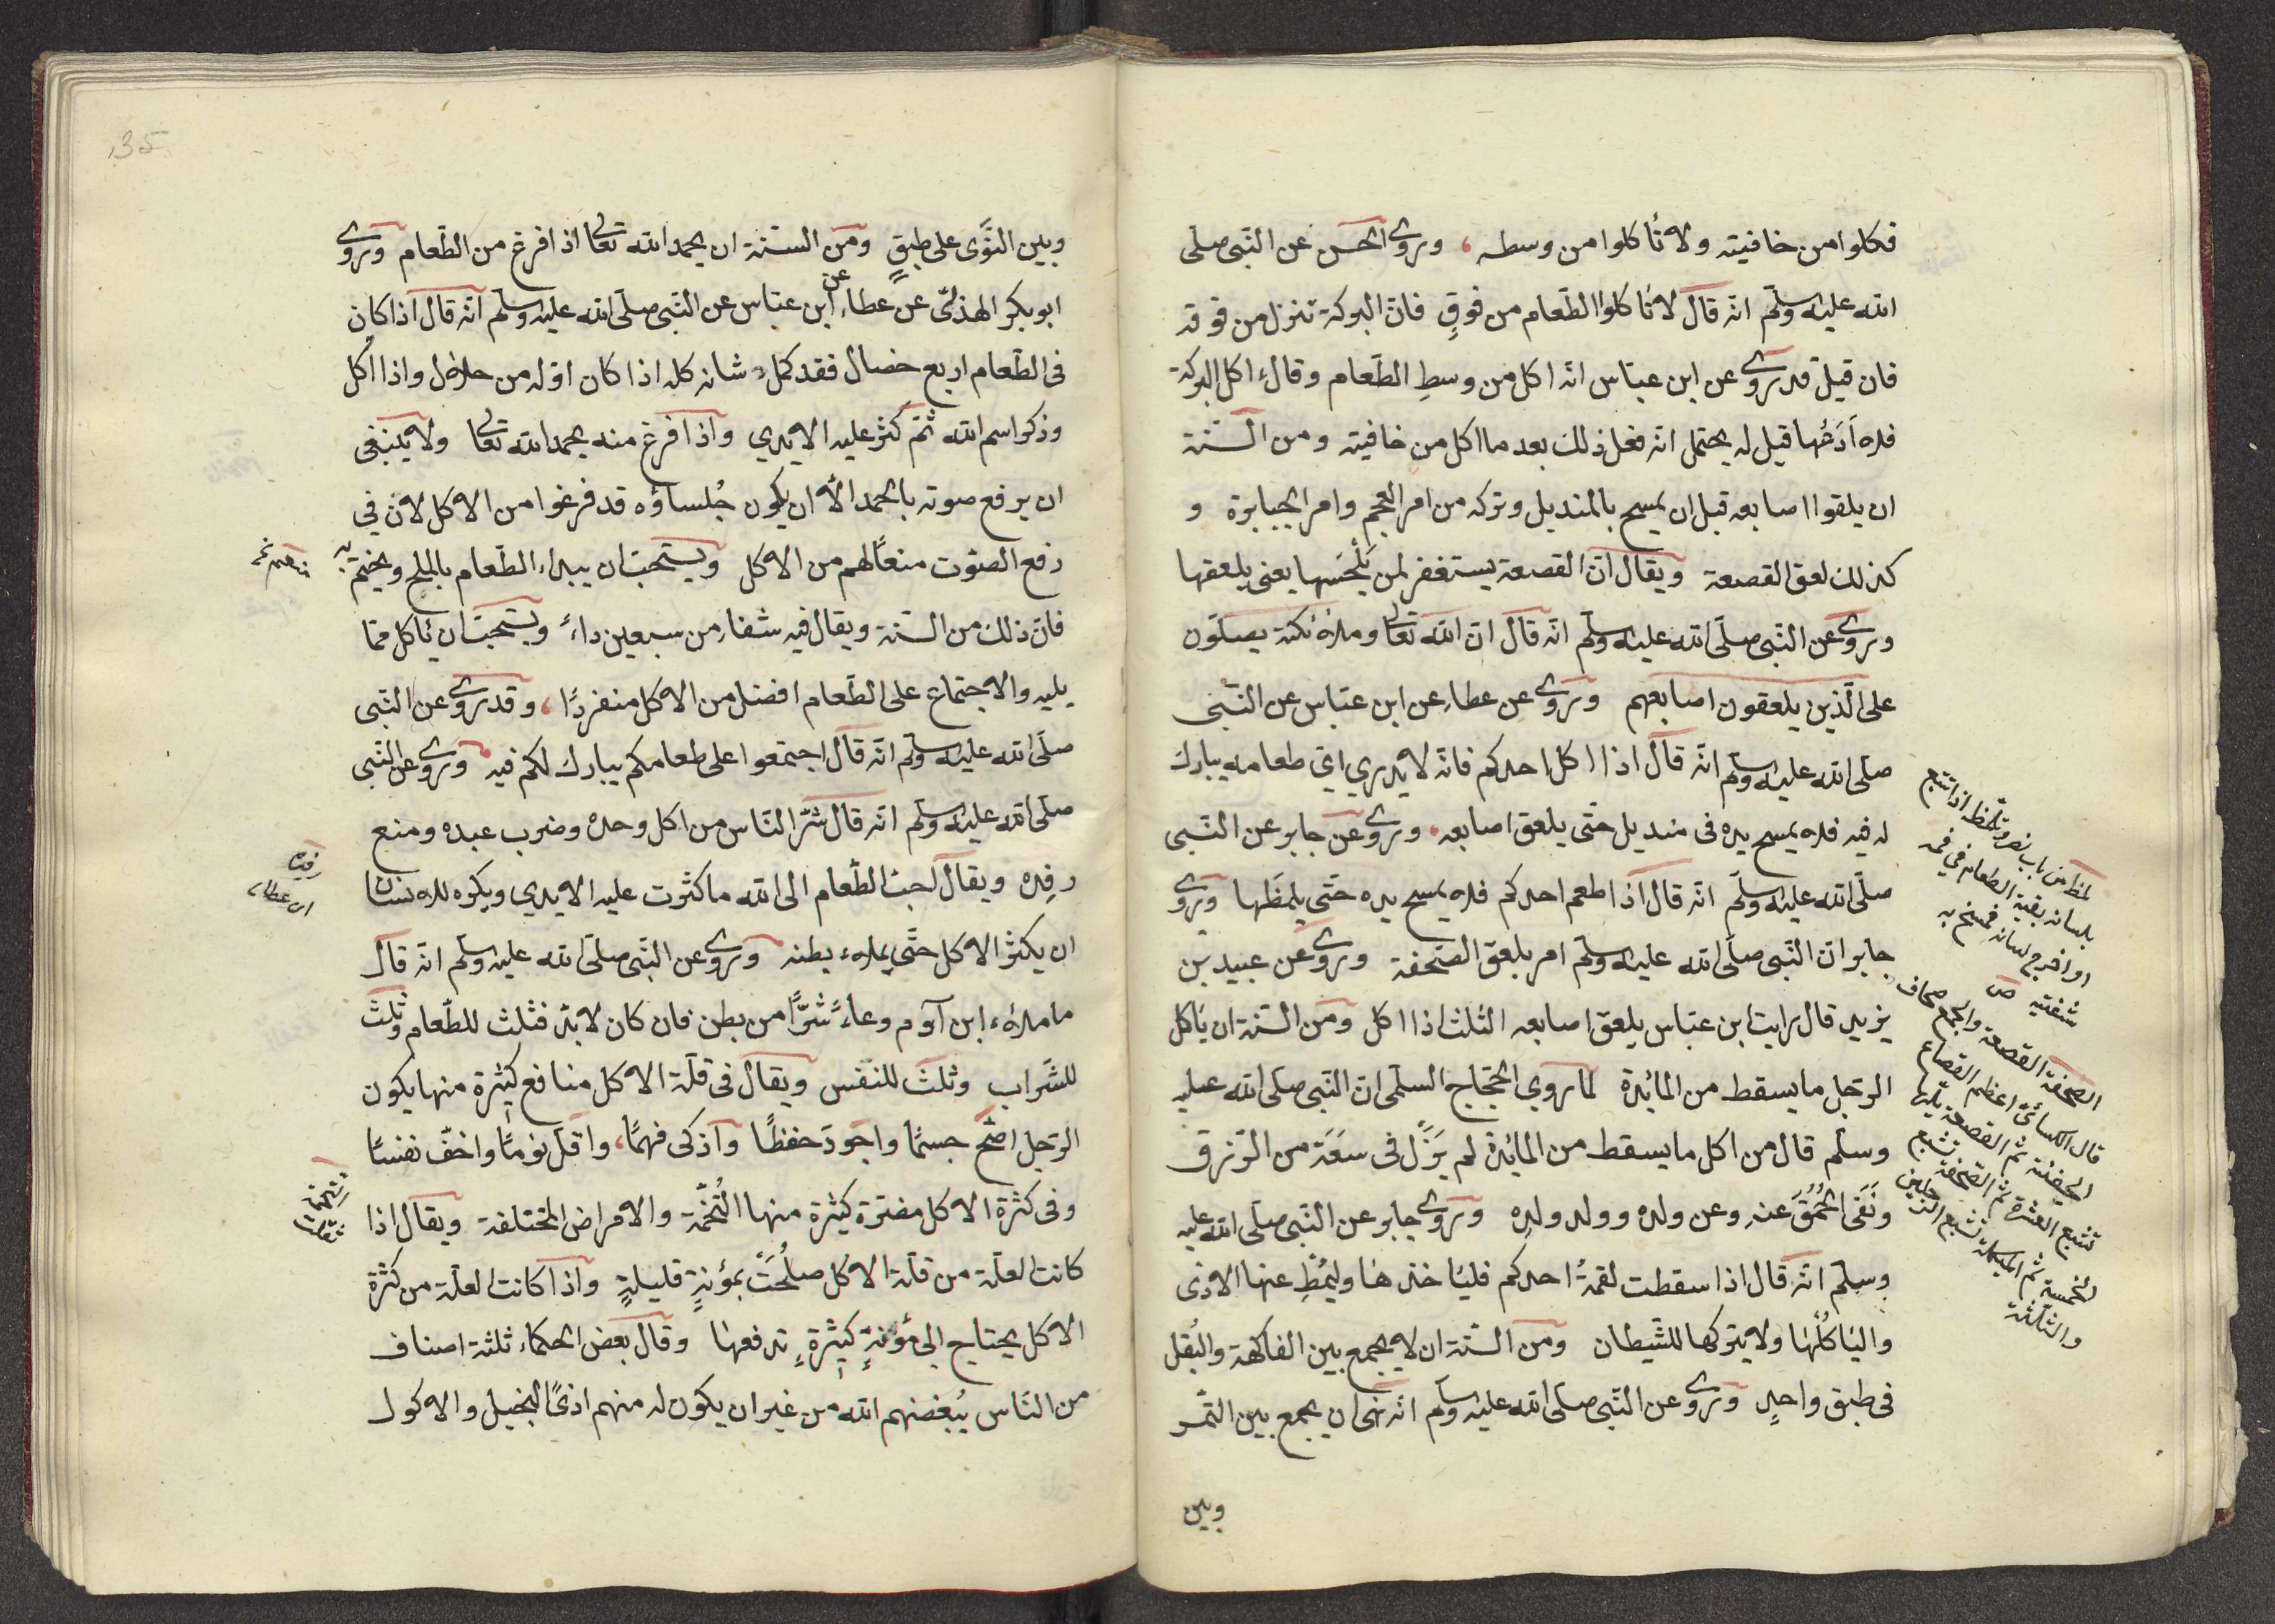 فكلوا من حافيته ولا تأكلوا من وسطه، وروي الحسن عن النّبى صلّى
الله عليه وسلّم انّه قال لا تأكلوا الطّعام من فوقِ فانّ البركة تنزل من فوقه
فان قيل قد روي عن ابن عبّاس انّه اكل من وسطِ الطّعام وقال اكل البركة
فلا اَدَعُها قيل له يحتمل انّه فعل ذلك بعد ما اكل من حافيته ومن السّنّة
ان يلقوا اصابعه قبل ان يمسح بالمنديل وتركه من امر العجم وامر الجبابرة و
كذلك لعق القصعة ويقال انّ القصعة يستغفر لمن يَلْحَسها يعنى يلعقها
وروي عن النّبى صلّى الله عليه وسلّم انّه قال انّ الله تعالى وملائكته يصلّون
على الّذين يلعقون اصابعهم وروي عن عطاء عن ابن عبّاس عن النّبى
صلّى الله عليه وسلّم انّه قال اذا اكل احدكم فانّه لا يدري ايّ طعامه يبارك
له فيه فلا يمسح يده فى منديل حتّى يلعق اصابعه، وروي عن جابر عن النّبى
صلّى الله عليه وسلّم انّه قال اذا طعم احدكم فلا يمسح يده حتّى يلمظها وروي
جابر انّ النّبى صلّى الله عليه وسلّم امر بلعق الصّحفة وروي عن عبيد بن
يزيد قال رايت ابن عبّاس يلعق اصابعه الثلث اذا اكل ومن السّنة ان يأكل
الرّجل ما يسقط من المائدة لما روي الحجّاج السلمى انّ النّبى صلّى الله عليه
وسلّم قال من اكل ما يسقط من المائدة لم يَزَلْ فى سَعَة من الرّزق
ونَفَى الحُمُقَ عنه وعن ولده وولد ولده وروي جابر عن النّبى صلّى الله عليه
وسلّم انّه قال اذا سقطت لقمةُ احدِكم فليأخذها وليُمْطِ عنها الاذى
واليأكُلْها ولا يتركها للشّيطان ومن السّنّة ان لا يجمع بين الفاكهة والبُقل
فى طبق واحدٍ وروي عن النّبى صلّى الله عليه وسلّم انّه نهى ان يجمع بين التّمر
وبين
لمظ من باب نصر وتلمّظ اذا تتبع
بلسانه بقية الطعام في فمه
او اخرج لسانه فمسح به
شفتيه ص
الصّحفة القصعة والجمع صحاف
قال الكسائيّ اعظم القصاع
الجفنة ثمّ القصعة تليها
تشبع العشرة ثمّ الصّحفة تشبع
الخمسة ثمّ الميكلة تشبع الرّجلين
والثّلثة
135
وبين النَّوَى على طبقٍ ومن السنّة ان يحمد الله تعالى اذا فرغ من الطّعام وروي
ابو بكر الهذلىّ عن عطاء عن ابن عبّاس عن النّبى صلّى الله عليه وسلّم انّه قال اذا كان
فى الطّعام اربع خصال فقد كمل شانه كله اذا كان اوّله من حلال واذا اكل
وذكر اسم الله ثمّ كثر عليه الايدي واذا فرغ منه يحمد الله تعالى ولا ينبغى
ان يرفع صوته بالحمد الاّ ان يكون جُلساؤه قد فرغوا من الاكل لانّ في
رفع الصّوت منعًا لهم من الاكل ويستحبّ ان يبداء الطّعام بالملح ويختم به
فانّ ذلك من السنّة ويقال فيه شفاء من سبعين داءً ويستحبّ ان يأكل ممّا
يليه والاجتماع على الطّعام افضل من الاكل منفردًا، وقد روي عن النّبى
صلّى الله عليه وسلّم انّه قال اجتمعوا على طعامكم يبارك لكم فيه وروي عن النّبى
صلّى الله عليه وسلّم انّه قال شرّ النّاس من اكل وحده وضرب عبده ومنع
رفده ويقال احبّ الطّعام الى الله ما كثرت عليه الايدي ويكره للانسان
ان يكثر الاكل حتّى يملاء بطنه وروي عن النّبى صلّى الله عليه وسلّم انّه قال
ما ملاء ابن آدم وعاءً شرًّا من بطن فان كان لا بدّ فثلث للطّعام وثلث
للشّراب وثلث للنّفس ويقال فى قلّة الاكل منافع كثيرة منها يكون
الرّجل اصحّ جسمًا واجودَ حفظًا واذكى فهمًا، واقلّ نومًا واخفّ نفسًا
وفى كثرة الاكل مضرّة كثيرة منها التُخَمة والامراض المختلفة ويقال اذا
كانت العلّة من قلّة الاكل صلُحَتْ بمؤنةٍ قليلةٍ واذا كانت العلّة من كثرة
الاكل يحتاج الى مؤنةٍ كثيرةٍ تدفعها وقال بعض الحكماء ثلثة اصناف
من النّاس يُبغضهم الله من غير ان يكون له منهم اذىً البخيل والاكول
رفده
اى عطاء